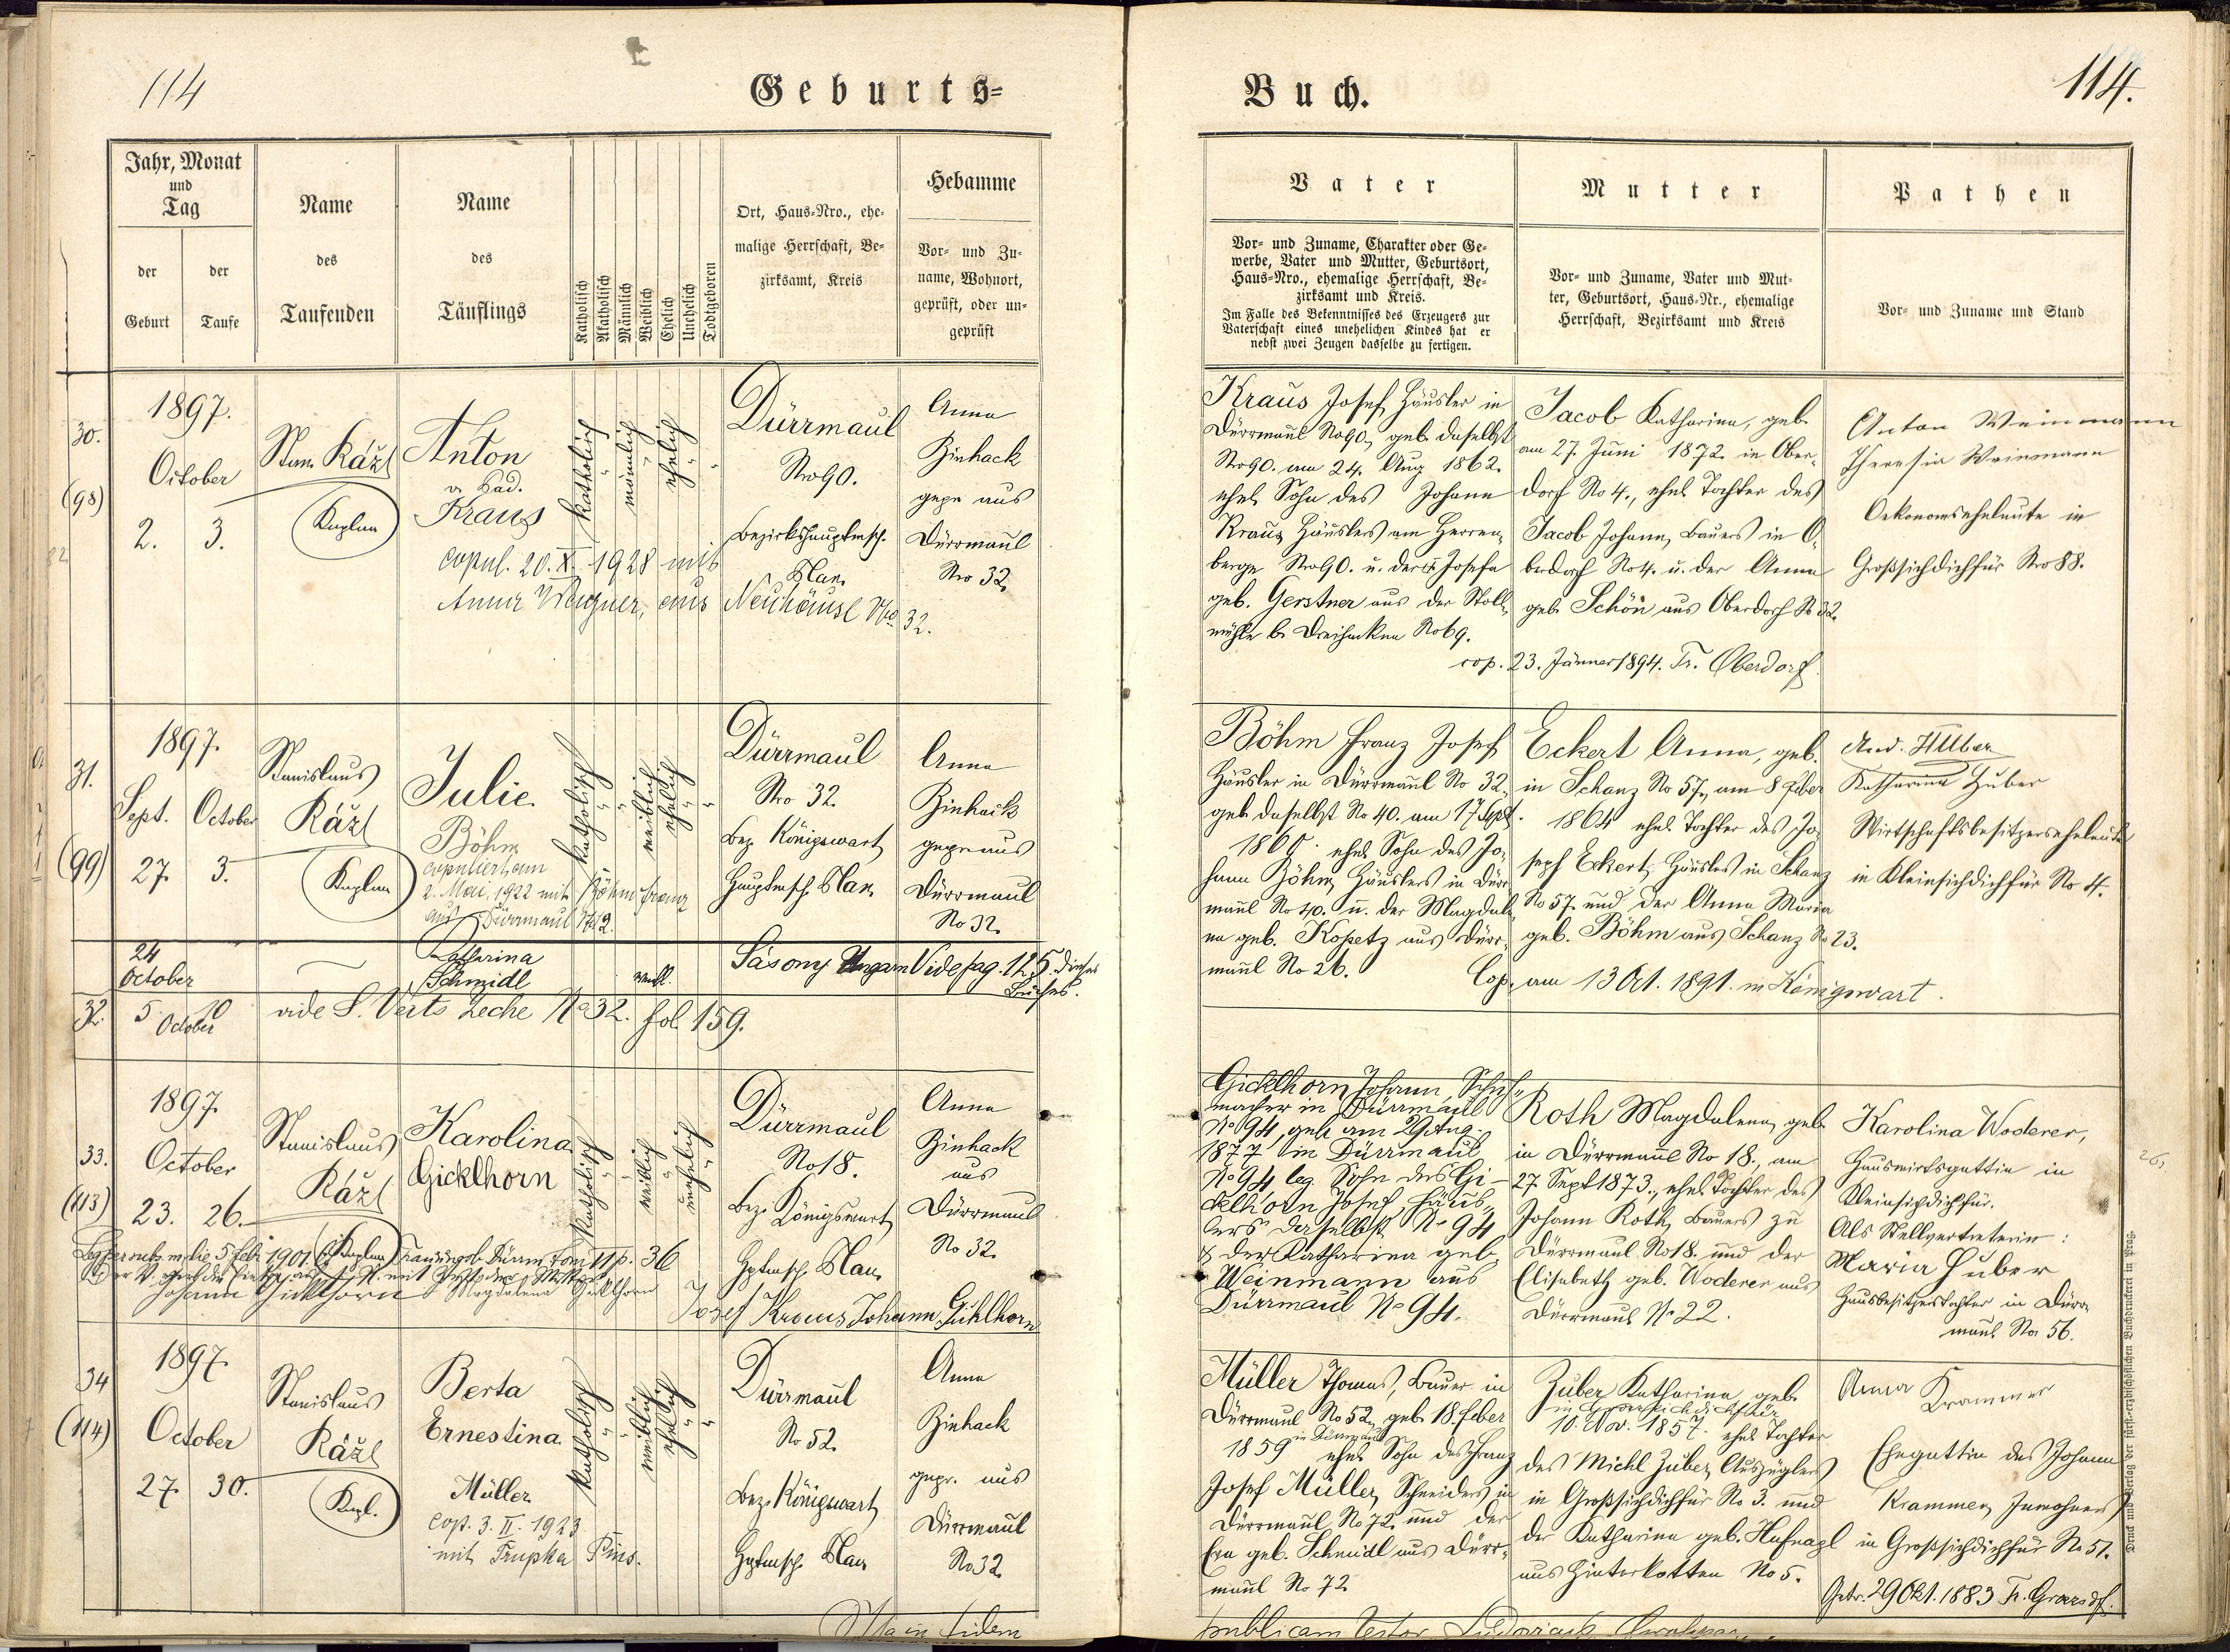 114
Geburts=
Jahr, Monat
und
Tag
der
Geburt
der
Taufe
Name
des
Taufenden
Name
des
Täuflings
Katholisch
Akatholisch
Männlich
Weiblich
Ehelich
Unehelich
Todtgeboren
Ort, Haus=Nro., ehe=
malige Herrschaft, Be=
zirksamt, Kreis
Hebamme
Vor= und Zu=
name, Wohnort,
geprüft, oder un=
geprüft
30.
(98)
1897.
October
2. 3.
Stan. Ražl
Kaplan
Anton
Kraus
copul. 20. X. 1928 mit
Anna Wagner, aus Neuhäusl No 32.
katholisch
männlich
ehelich
Dürrmaul
Nro 90.
Bezirkshauptmsch.
Plan.
Anna
Zinhack
gepr. aus
Dürrmaul
Nro 32.
31.
(99)
1897.
Sept. October
27. 3.
Stanislaus
Ražl
Kaplan
Julie
Böhm
copuliert am
2. Mai 1922 mit Böhm Franz
aus Dürrmaul
katholisch
weiblich
ehelich
Dürrmaul
Nro 32.
Bez. Königswart
Hauptmsch. Plan.
Anna
Zinhack
gepr. aus
Dürrmaul
No 32.
24
October
Katharina
Schmidl
weibl.
Sásony Ungarn Vide pag. 125 dieses
Buches.
32.
5. 10
October
vide S. Veits Zeche No 32. fol. 159.
33.
(113)
1897.
October
23. 26.
Stanislaus
Ražl
Kaplan
Karolina
Gicklhorn
katholisch
weiblich
unehelich
Dürrmaul
No 18.
Bez. Königswart
Hptmsch. Plan.
Anna
Zinhack
aus
Dürrmaul
No 32.
Johann Gicklhorn Magdalena Gicklhorn
Josef Kraus Johann Gicklhorn
34
(114)
1897.
October
27. 30.
Stanislaus
Ražl
Kapl.
Berta
Ernestina
Müller
cop. 3. II. 1923
mit Trupka Pius.
katholisch
weiblich
ehelich
Dürrmaul
No 52.
Bez. Königswart
Hptmsch. Plan
Anna
Zinhack
gepr. aus
Dürrmaul
No 32.
Ita in fidem
Buch.
114.
Vater
Vor= und Zuname, Charakter oder Ge=
werbe, Vater und Mutter, Geburtsort,
Haus=Nro., ehemalige Herrschaft, Be=
zirksamt und Kreis.
Im Falle des Bekenntnisses des Erzeugers zur
Vaterschaft eines unehelichen Kindes hat er
nebst zwei Zeugen dasselbe zu fertigen.
Mutter
Vor= und Zuname, Vater und Mut=
ter, Geburtsort, Haus=Nr., ehemalige
Herrschaft, Bezirksamt und Kreis
Pathen
Vor= und Zuname und Stand
Kraus Josef, Häusler in
Dürrmaul No 90, geb. daselbst
Nro 90. am 24. Aug. 1862.
ehel. Sohn des Johann
Kraus, Häuslers am Herren-
berge Nro 90. u. der Josefa
geb. Gerstner aus der Stoll-
mühle b. Dreihacken No 69.
Jacob Katharina, geb.
am 27. Juni 1872. in Ober-
dorf No 4., ehel. Tochter des
Jacob Johann, Bauers in O-
berdorf No 4. u. der Anna
geb. Schön aus Oberdorf No 32.
cop. 23. Jänner 1894. Tr. Oberdorf.
Anton Weinmann
Theresia Weinmann
Oekonomseheleute in
Großsichdichfür Nro 88.
Böhm Franz Josef
Häusler in Dürrmaul No 32,
geb. daselbst No 40. am 17 Sept.
ehel. Sohn des Jo-
hann Böhm, Häuslers in Dürr-
maul No 40. u. der Magdale-
na geb. Kopetz aus Dürr-
maul No 26.
Eckert Anna, geb.
in Schanz No 57., am 8 Feber
1864 ehel. Tochter des Jo-
seph Eckert, Häuslers in Schanz
No 57. und der Anna Maria
geb. Böhm aus Schanz No 23.
Cop. am 13 Okt. 1891. in Königswart.
And. Huber
Katharina Huber
Wirtschaftsbesitzerseheleute
in Kleinsichdichfür No 4.
Gicklhorn Johann, Schuh-
macher in Dürrmaul
No 94, geb. am 29 Aug.
1877 in Dürrmaul
No 94 leg. Sohn des Gi-
cklhorn Josef, Häus-
lers daselbst No 94
& der Katharina geb.
Weinmann aus
Dürrmaul No 94.
Roth Magdalena, geb.
in Dürrmaul No 18., am
27 Sept 1873., ehel. Tochter des
Johann Roth, Bauers zu
Dürrmaul No 18. und der
Elisabeth geb. Woderer aus
Dürrmaul No 22.
Karolina Woderer,
Hauswirtsgattin in
Kleinsichdichfür.
Als Stellvertreterin:
Maria Huber
Hausbesitzerstochter in Dürr-
maul No 56.
Müller Thomas, Bauer in
Dürrmaul No 52, geb. 18. Feber
1859 in Dürrmaul ehel. Sohn des Franz
Josef Müller, Schneiders in
Dürrmaul No 72. und der
Eva geb. Schmidl aus Dürr-
maul No 72
Zuber Katharina, geb.
in Grossichdichfür
10. Nov. 1857. ehel. Tochter
des Michl Zuber, Auszüglers
in Großsichdichfür No 3. und
der Katharina geb. Hafnagl
aus Hinterkotten No 5.
Anna Krammer
Ehegattin des Johann
Krammer, Inwohners
in Großsichdichfür No 51.
Getr. 29 Okt. 1883
publicam testor
Druck und Verlag der fürst.=erzbischöflichen Buchdruckerei in Prag.